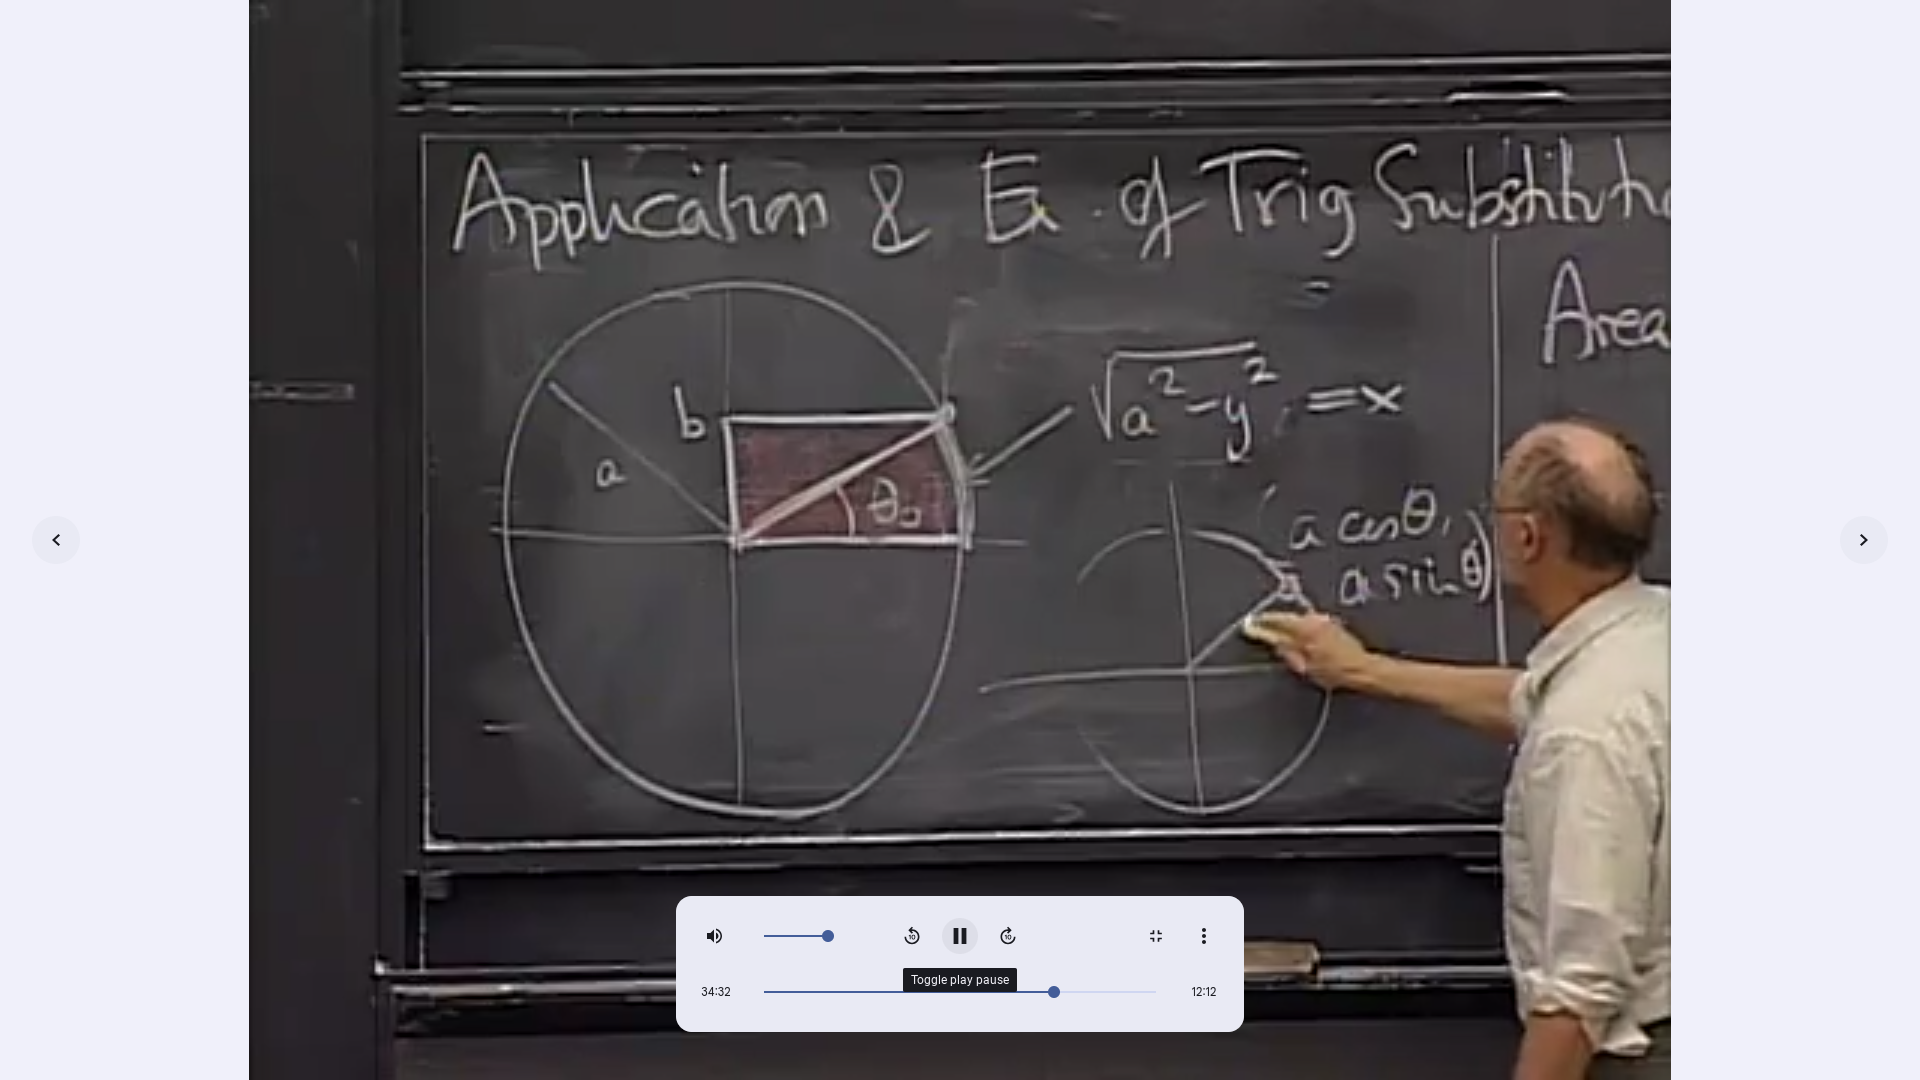 Application & Ex. of Trig Substitutio
Area
b
a
θ₀
√a²-y² = x
(a cosθ,
a sinθ)
10
10
Toggle play pause
34:32
12:12